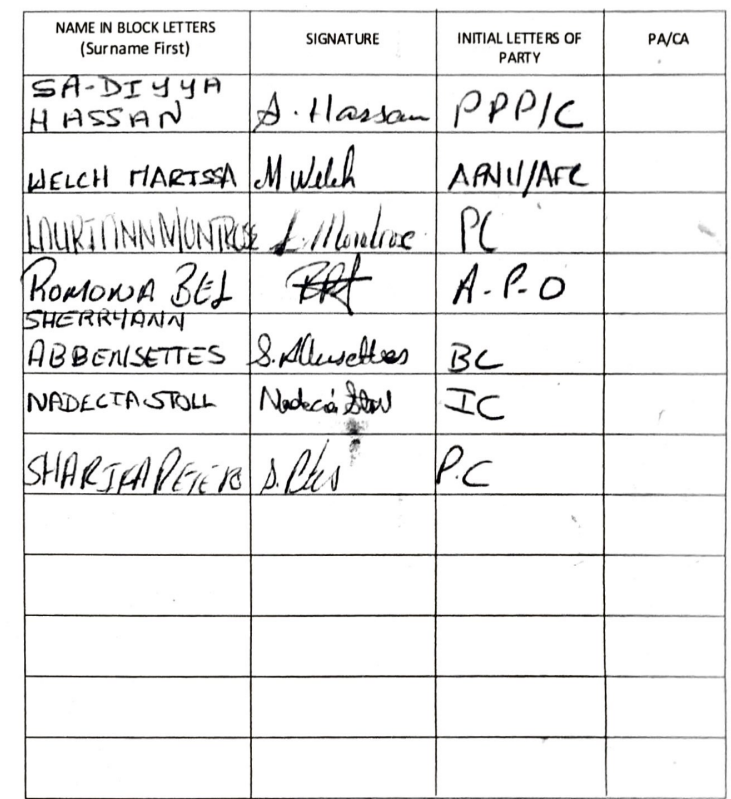 NAME IN BLOCK LETTERS
(Surname First)
SIGNATURE
INITIAL LETTERS OF
PARTY
PA/CA
SA-DIYYA
HASSAN
S. Hassan
PPP/C
WELCH MARISSA
M Welch
APNU/AFC
LAURIANN MONTROSE
L. Montrose
PC
ROMONA BEL
A-P-O
SHERRYANN
ABBENSETTES
S. Abbensettes
BC
NADECIA STOLL
Nadecia Stoll
IC
SHARIFA PETERS
P.C